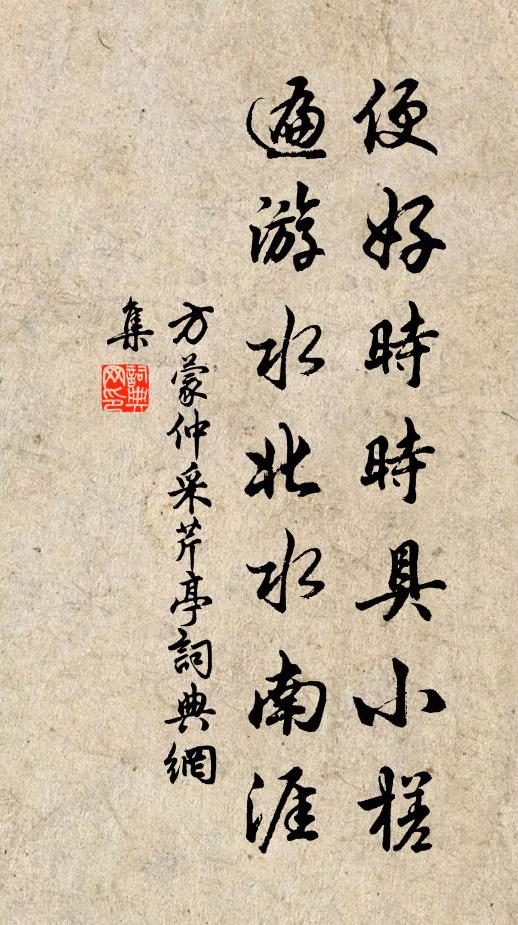 便好時時具小槎
遍游水北水南涯
方蒙仲采芹亭詞典網
集
詞典
网印